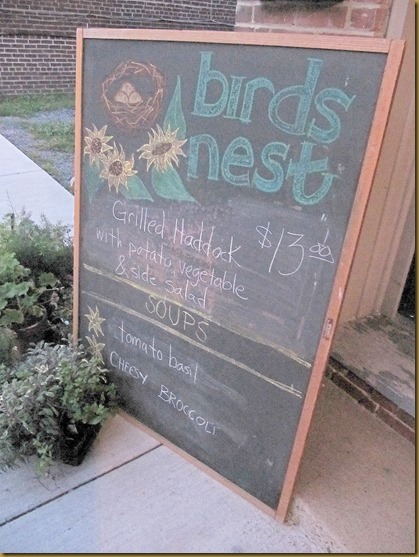 birds
nest
Grilled Haddock
with potato, vegetable
& side salad
$13.00
SOUPS
tomato basil
CHEESY BROCCOLI